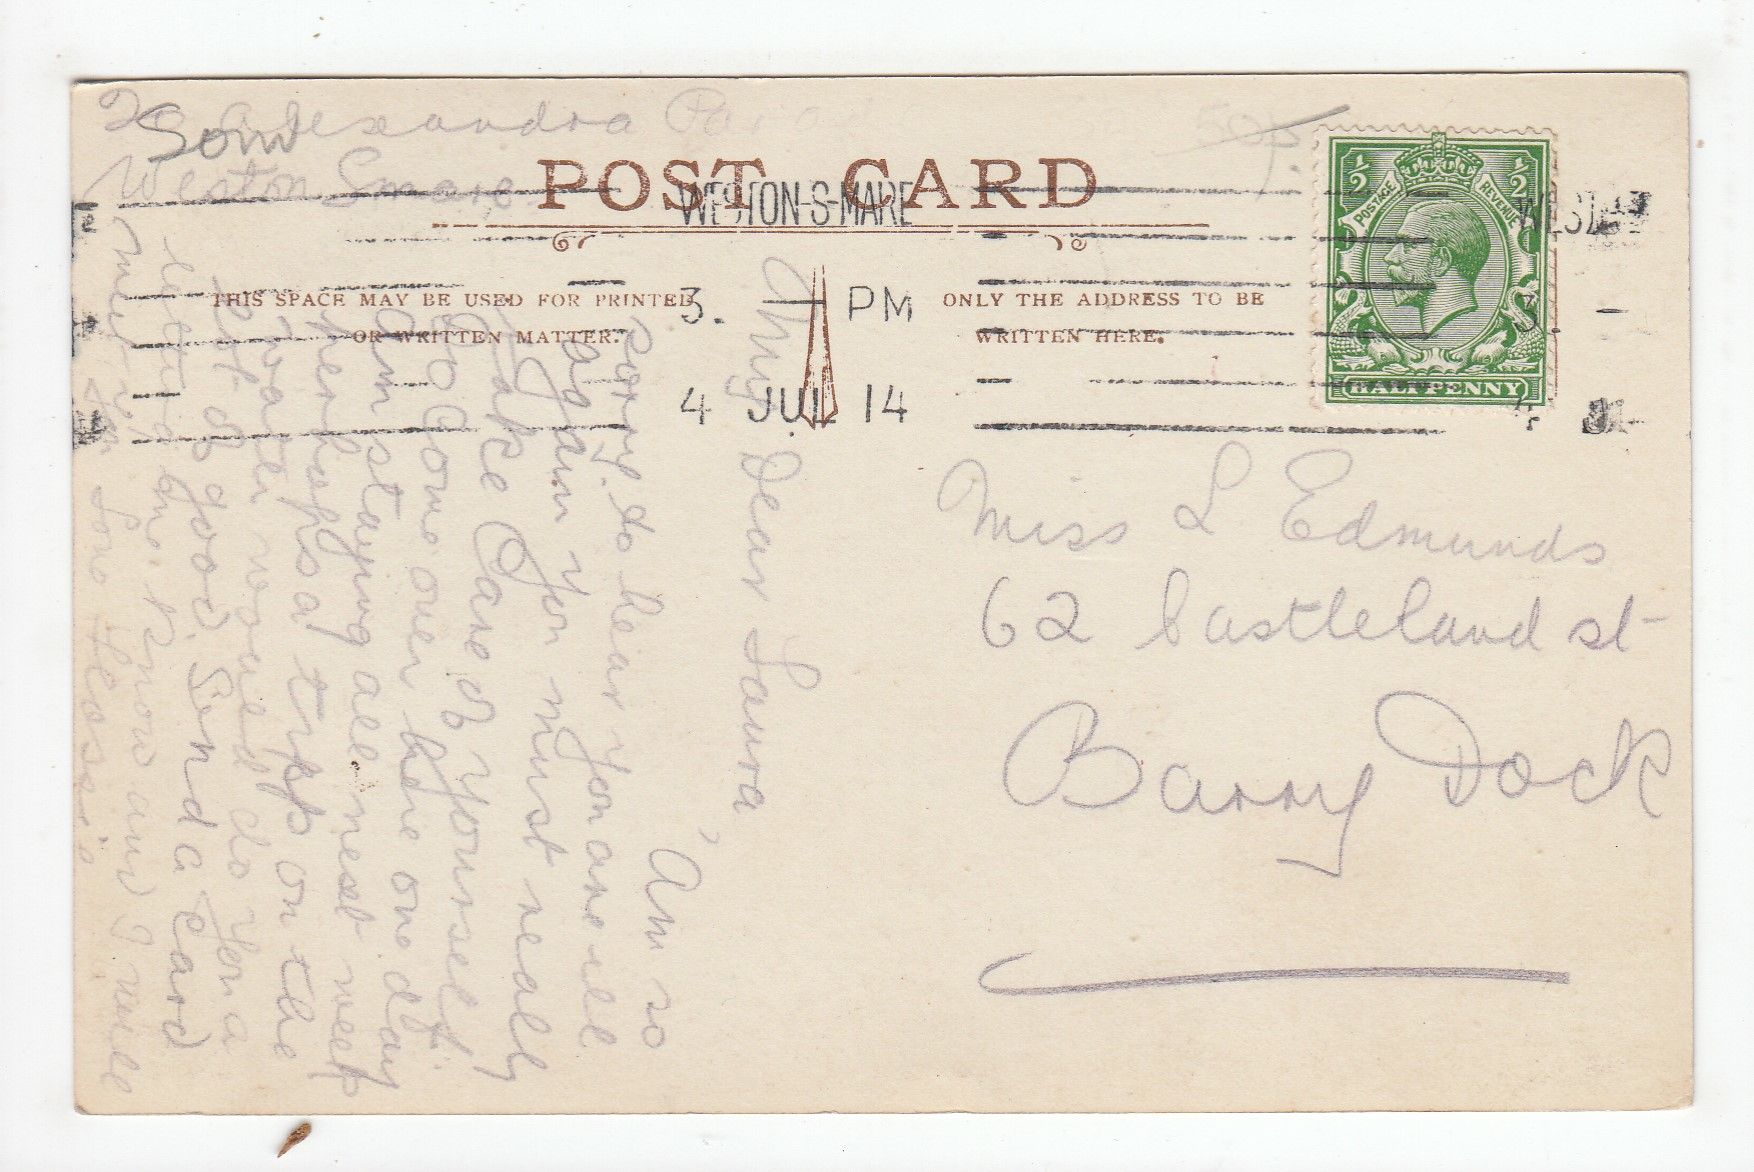 Alexandra Para
Som
Weston S mare
50p.
POST CARD
WESTON-S-MARE
3. — PM
4 JUL 14
THIS SPACE MAY BE USED FOR PRINTED
OR WRITTEN MATTER.
ONLY THE ADDRESS TO BE
WRITTEN HERE.
½ ½
POSTAGE REVENUE
HALFPENNY
WEST
3.
4 J
My Dear Laura,
Am so
sorry to hear you are ill
again you must really
take Care of yourself.
Do Come over here one day
am staying all next week
perhaps a tripp on the
water would do you a
lot of good Send a Card
letting me know and I will
meet you Love Flossie
Miss L Edmunds
62 Castleland st
Barry Dock